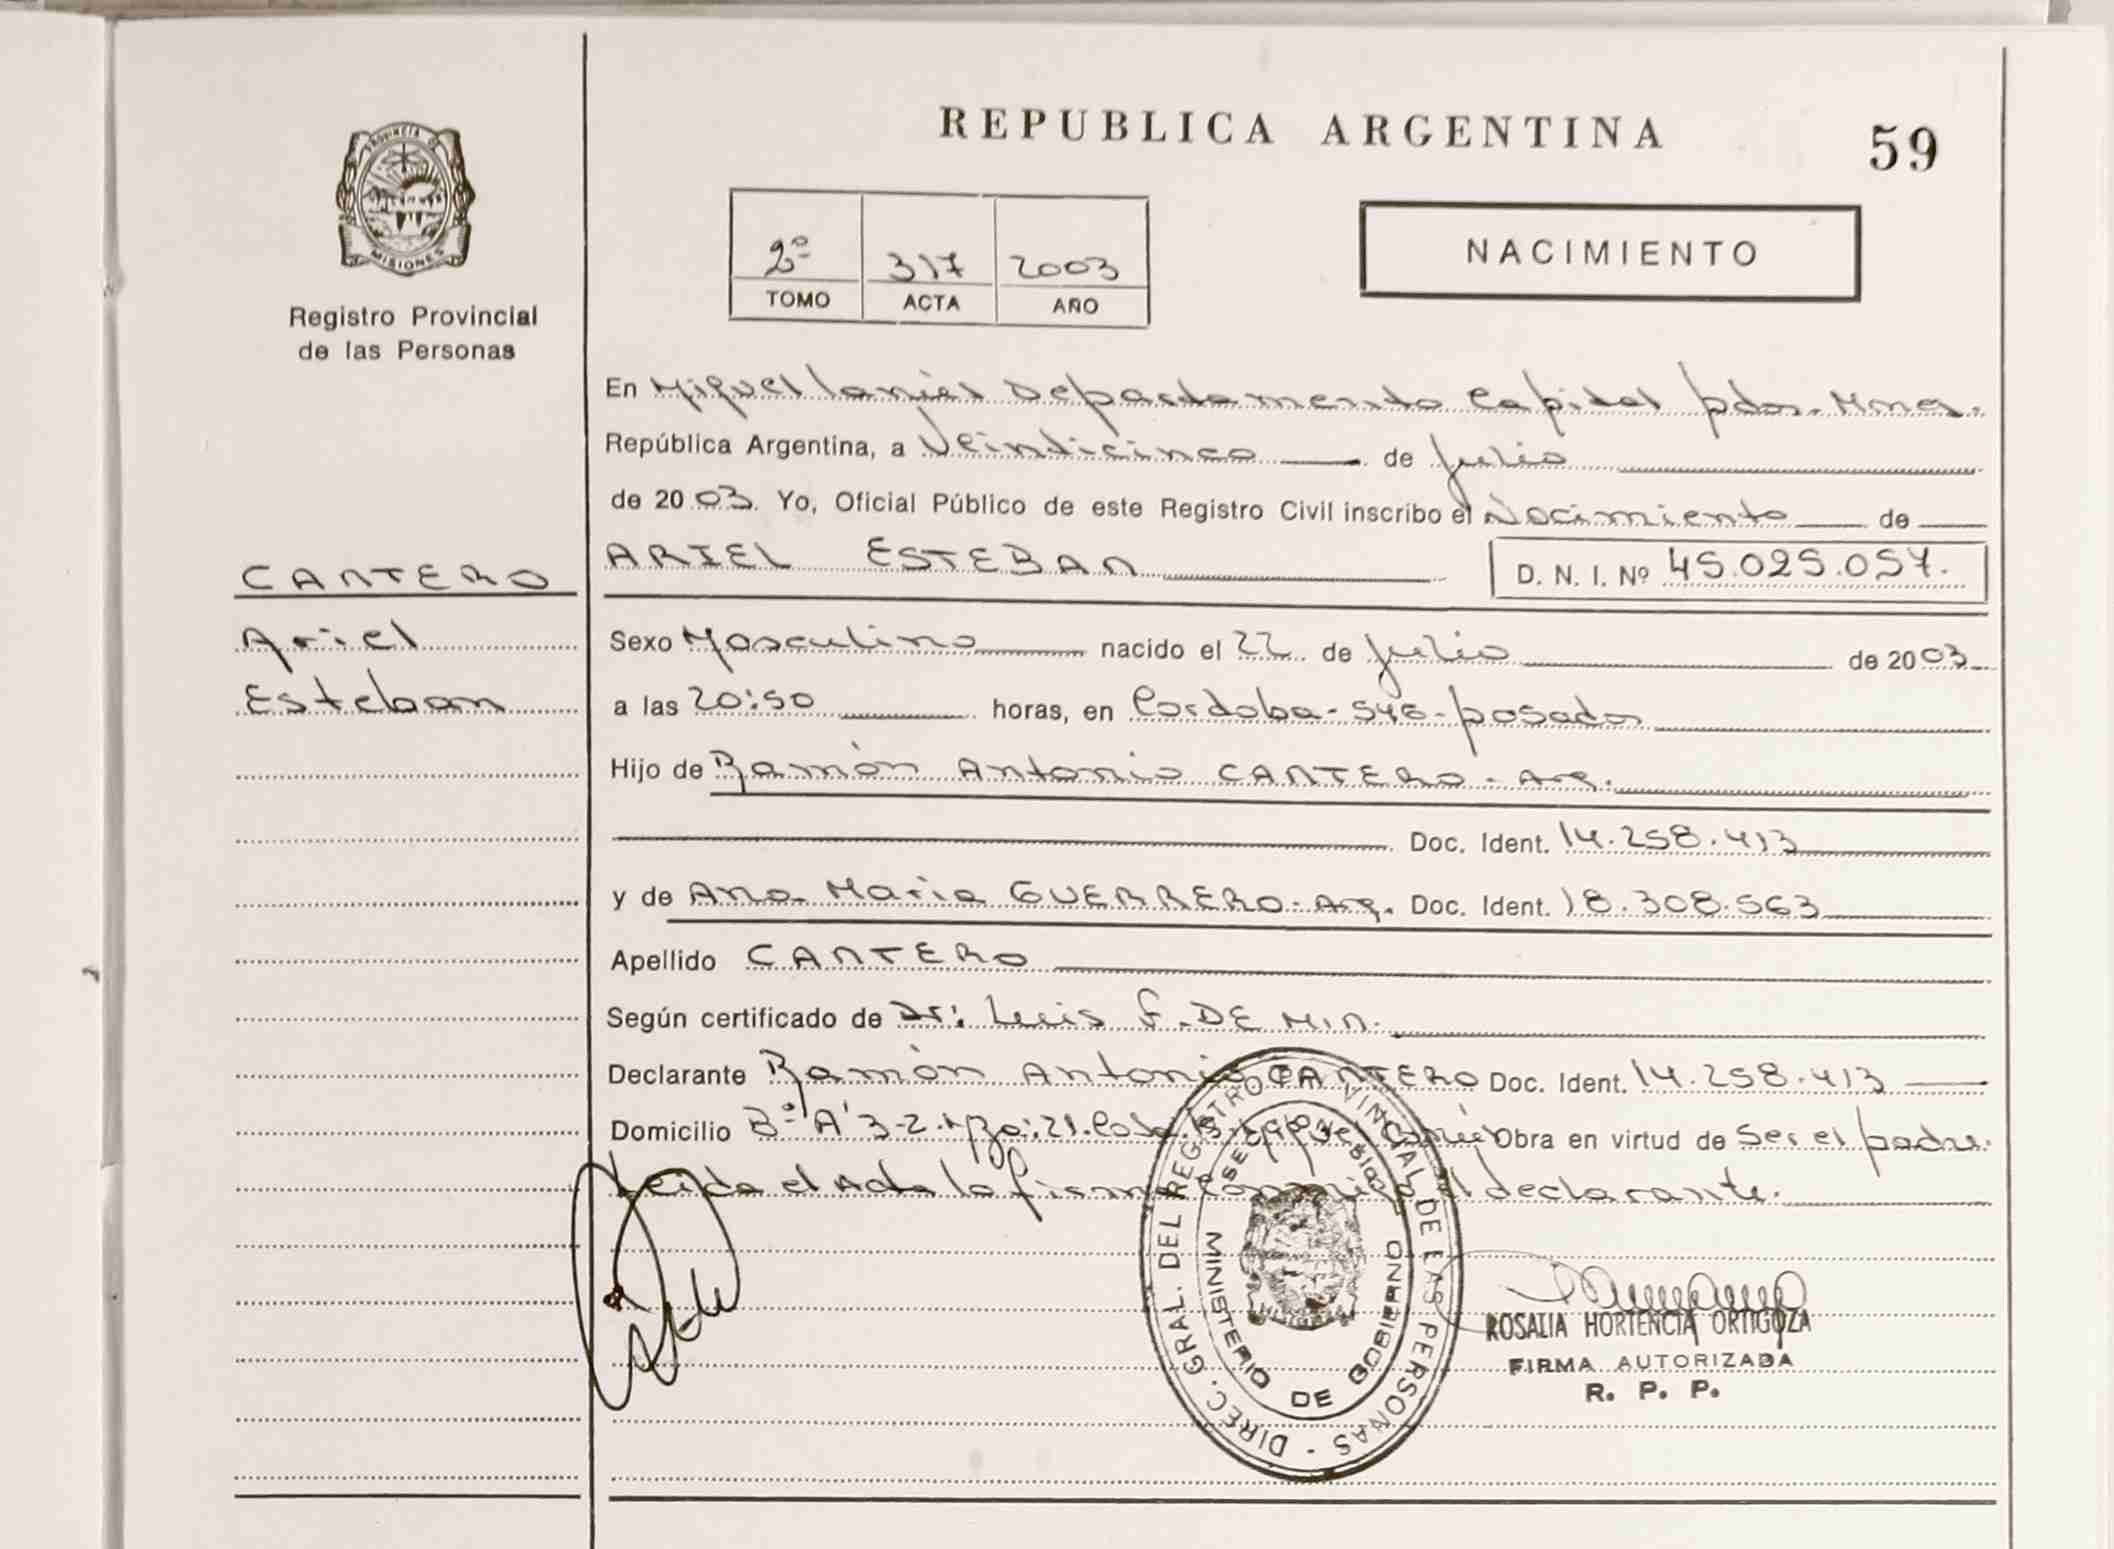 REPUBLICA ARGENTINA
59
PROVINCIA DE
MISIONES
Registro Provincial
de las Personas
2º 317 2003
TOMO ACTA AÑO
NACIMIENTO
En Miguel Lanús Departamento Capital pdas. Mnes.
República Argentina, a Veinticinco de Julio
de 2003. Yo, Oficial Público de este Registro Civil inscribo el Nacimiento de
CANTERO
ARIEL ESTEBAN D. N. I. Nº 45.025.057.
Ariel
Sexo Masculino nacido el 22 de Julio de 2003
Esteban
a las 20:50 horas, en Cordoba- 546- posadas
Hijo de Ramón Antonio CANTERO- Arg.
Doc. Ident. 14.258.413
y de Ana Maria GUERRERO- Arg. Doc. Ident. 18.308.563
Apellido CANTERO
Según certificado de Dr: Luis F. DE MIN.
Declarante Ramón Antonio CANTERO Doc. Ident. 14.258.413
Domicilio Bº A 3-2. Obra en virtud de ser el padre.
Leida el Acta la firma el declarante.
DIREC. GRAL. DEL REGISTRO PROVINCIAL DE LAS PERSONAS -
MINISTERIO DE GOBIERNO
ROSALIA HORTENCIA ORTIGOZA
FIRMA AUTORIZADA
R. P. P.